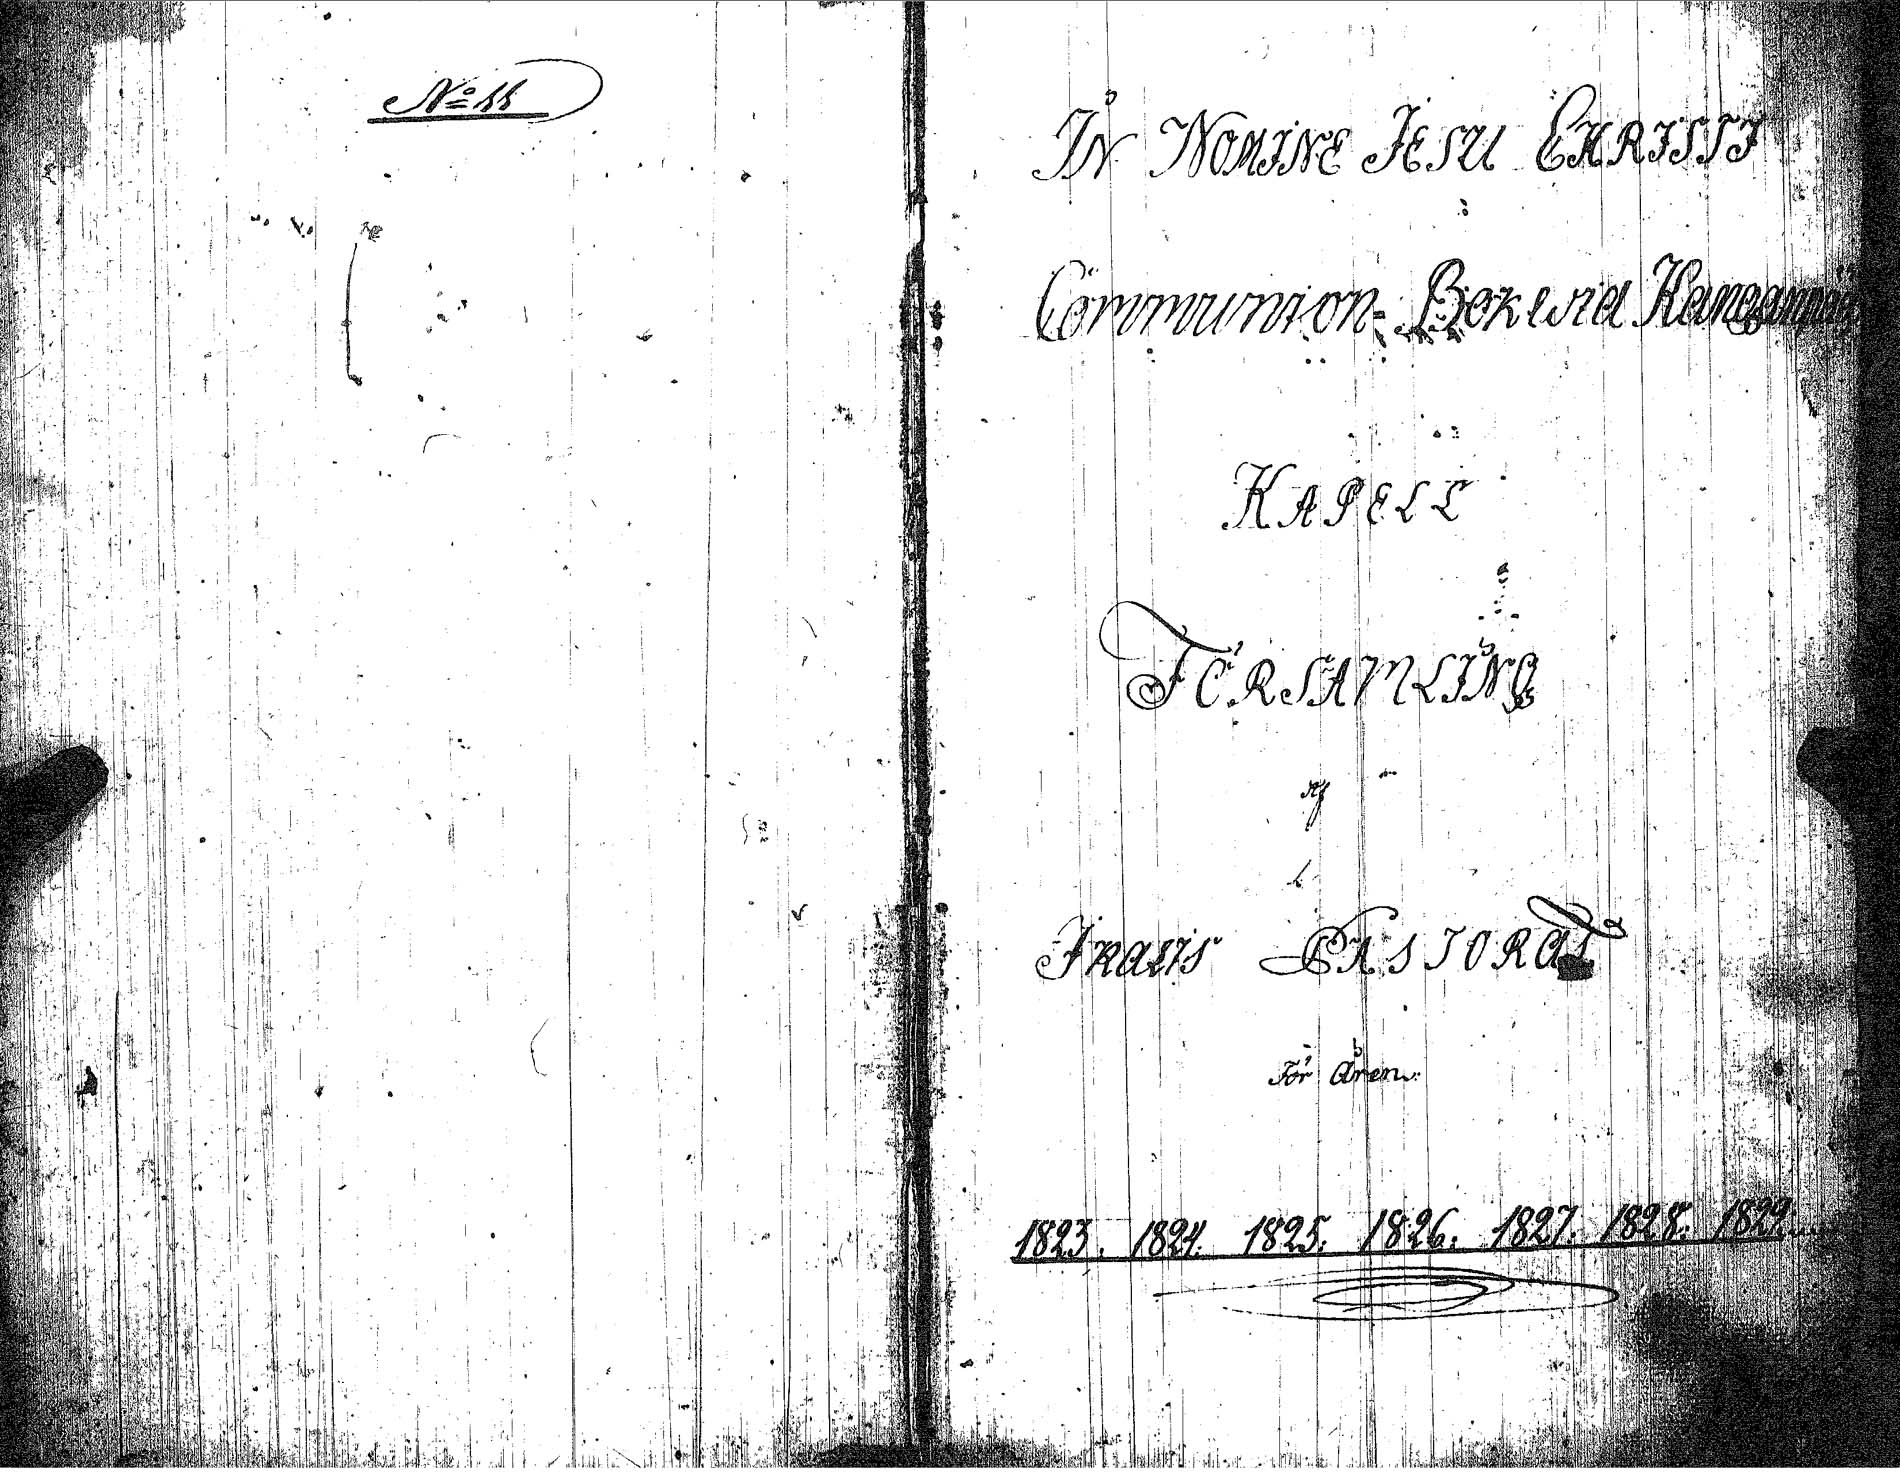 No 11
IN NOMINE JESU CHRISTI
Communion-Bok wid Kangasniemi
KAPELL
FÖRSAMLING
Af
PASTORAT
För Åren
1823. 1824. 1825. 1826. 1827. 1828. 1829.